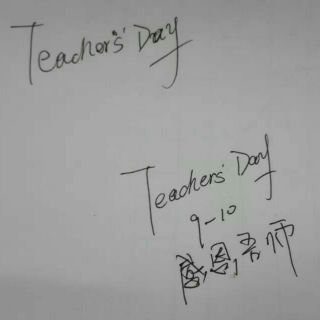 Teachers' Day
Teachers' Day
9-10
感恩,吾师